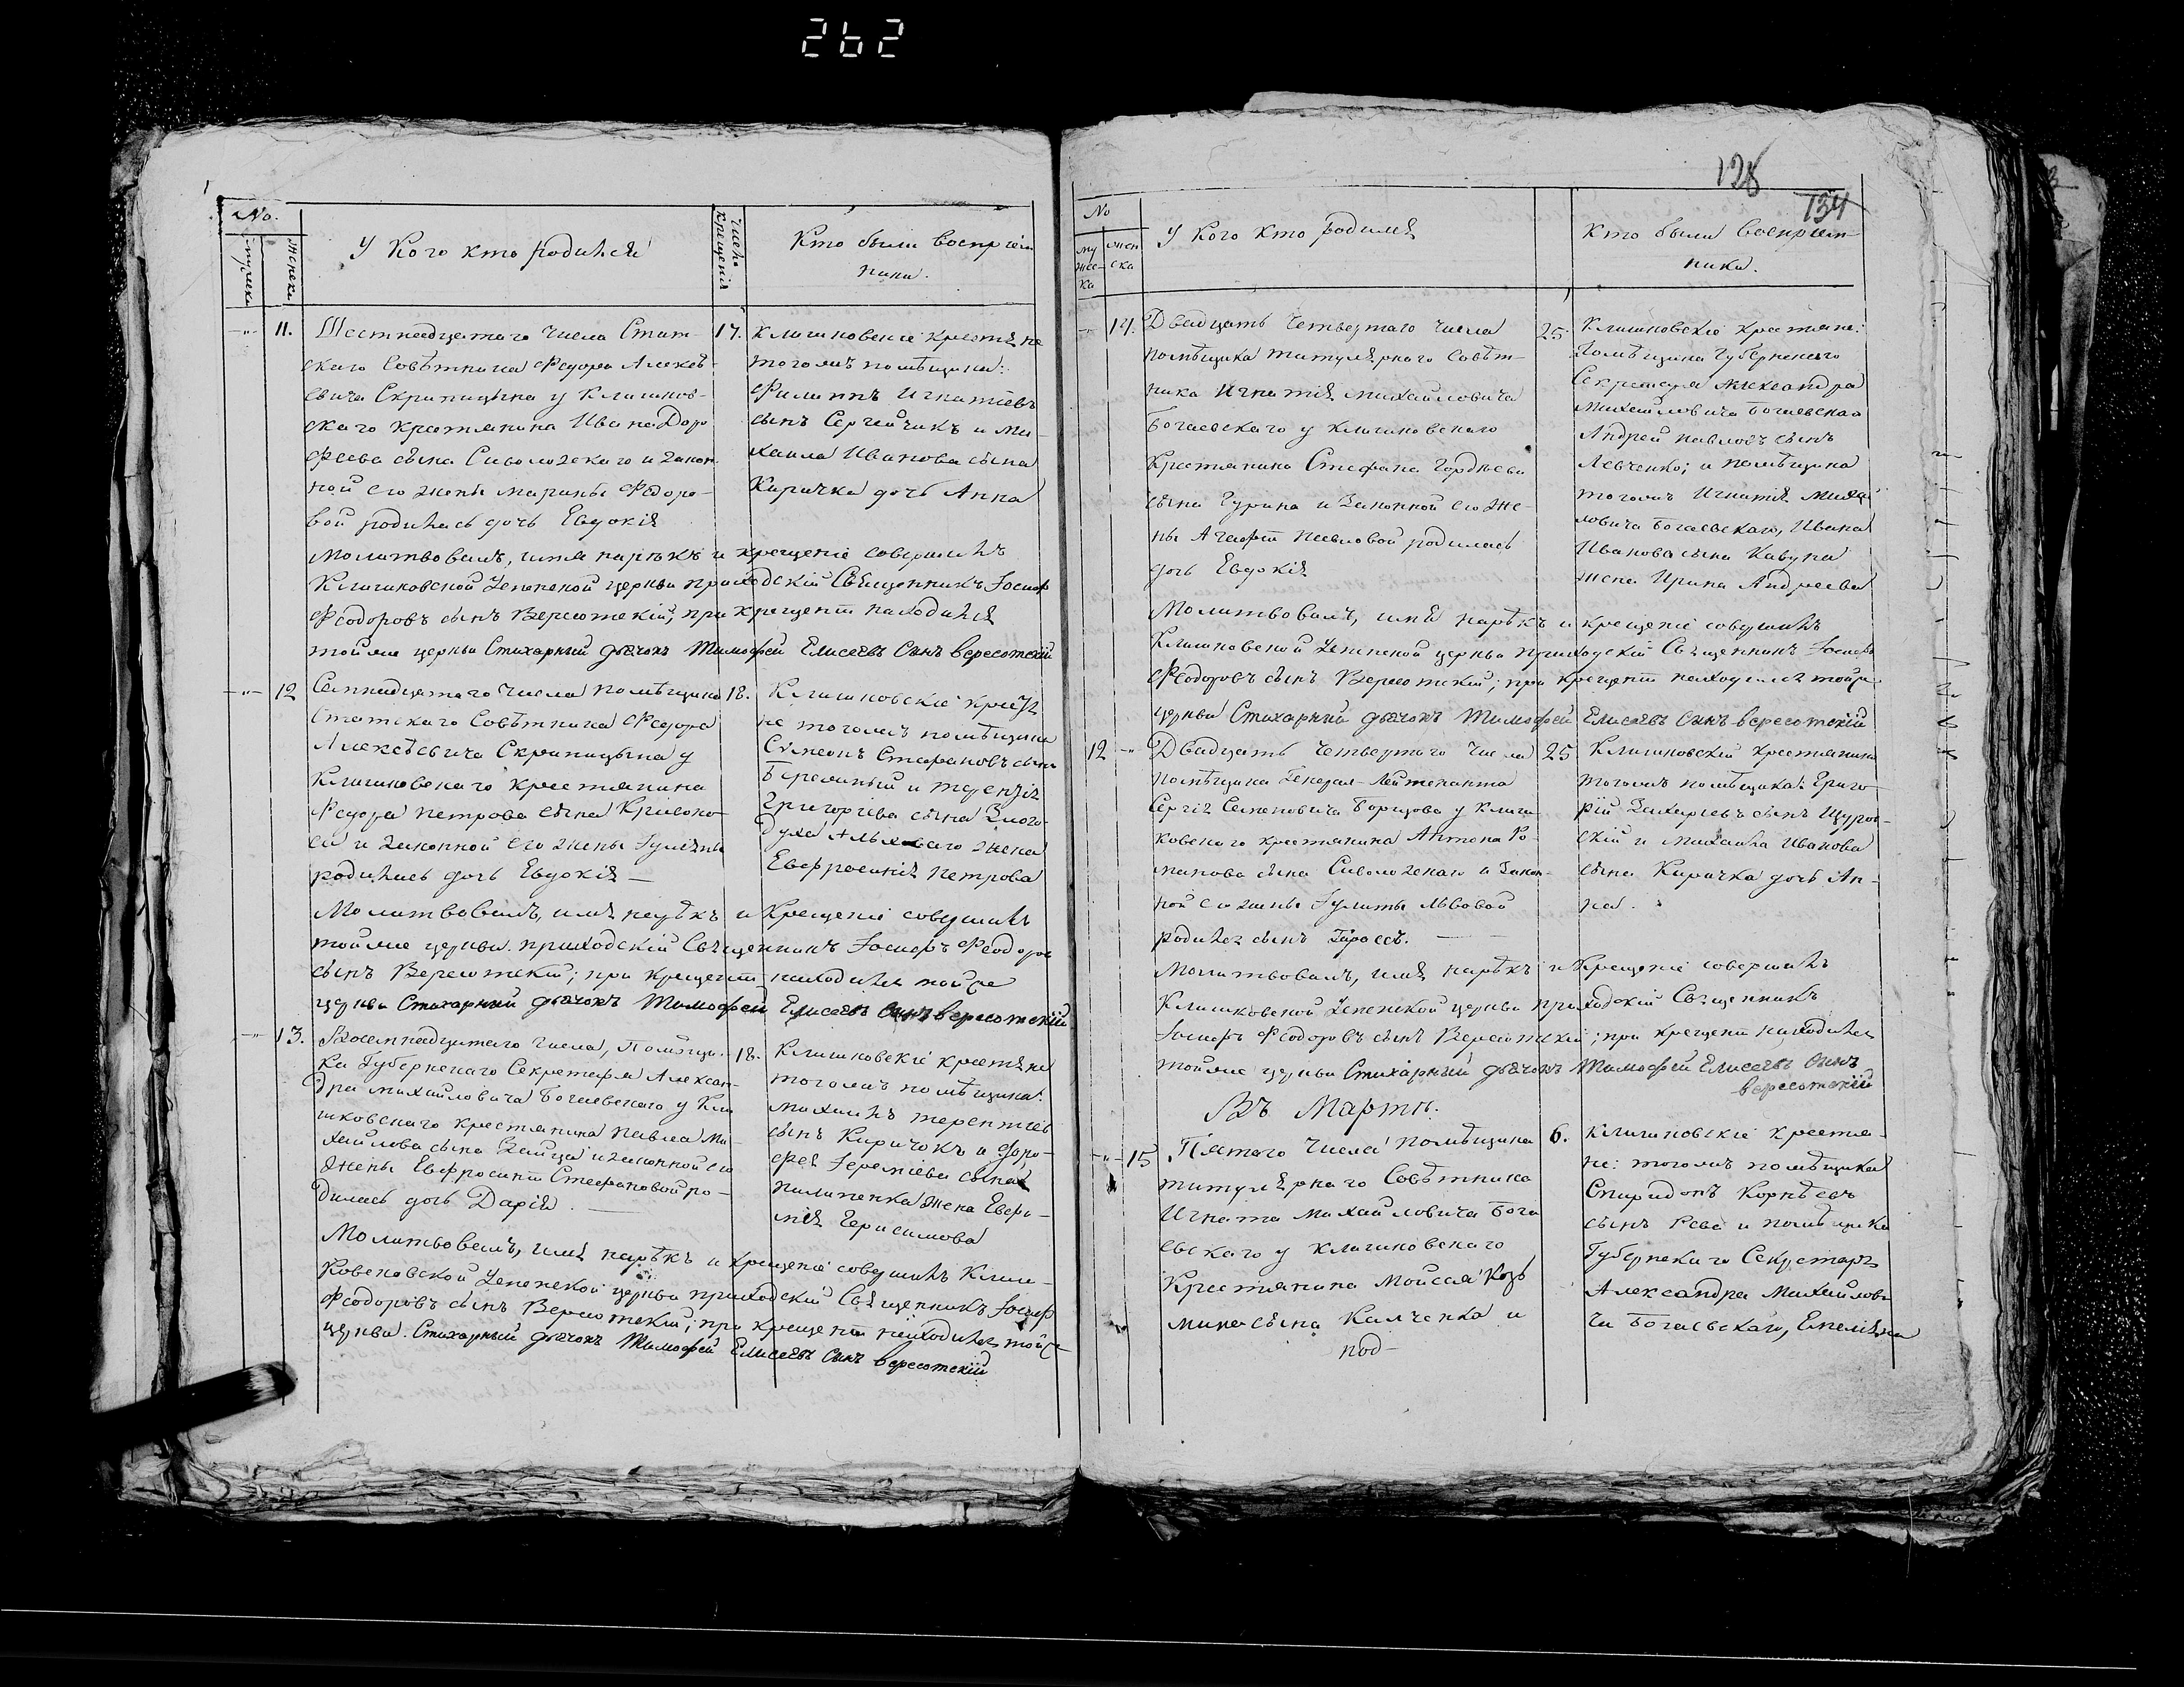 262
No.
мужеска
женска
У кого кто родился
Число крещенія
Кто были воспріем-
ники.
11.
Шестнадцатаго числа Стат-
скаго Совѣтника Федора Алексѣ-
евича Скрипицына у Клишков-
скаго крестянина Ивана Доро-
феева сына Сиволозскаго и закон-
ной его жены Марины Федоро-
вой родилась дочь Евдокія
17.
Клишковскіе крестяне
тогожъ помѣщика:
Филиппъ Игнатіевъ
сынъ Сергейчикъ и Ми-
хаила Иванова сына
Киричка дочь Анна
Молитвовалъ, имя нарѣкъ и крещеніе совершилъ
Клишковской Успенской церкви приходскій Священникъ Іосиф
Феодоровъ сынъ Вересотскій; при крещеніи находился
тойже церкви Стихарный дьячокъ Тимофей Елисеевъ Сынъ Вересотскій
12
Семнадцатаго числа помѣщика
Статскаго Совѣтника Федора
Алексѣевича Скрипицына у
Клишковскаго крестянина
Федора Петрова сына Кривоно-
са и законной его жены Іуліяны
родилась дочь Евдокія —
18.
Клишковскіе крестя
не тогожъ помѣщика
Сѵмеонъ Стефановъ сынъ
и Терентія
Григоріева сына
жена
Евфросинія Петрова
Молитвовалъ, имя нарѣкъ и крещеніе совершилъ
тойже церкви приходскій Священникъ Іосифъ Феодоров
сынъ Вересотскій; при крещеніи находился тойже
церкви Стихарный дьячокъ Тимофей Елисеевъ Сынъ Вересотскій
13.
Восемнадцатаго числа, Помѣщи-
ка Губернскаго Секретаря Алексан-
дра Михайловича Богаевскаго у Кли
шковскаго крестянина Павла Ми-
хайлова сына Зайца и законной его
жены Евфросиніи Стефановой ро-
дилась дочь Дарія. —
18.
Клишковскіе крестяне
тогожъ помѣщика:
Михаилъ Терентіев
сынъ Киричокъ и Доро-
фея Іереміева сына
Пилипенка жена Евфи-
мія Герасимова
Молитвовалъ, имя нарѣкъ и крещеніе совершилъ Клиш-
ковской Успенской церкви приходскій Священникъ Іосиф
Феодоровъ сынъ Вересотскій; при крещеніи находился тойже
церкви Стихарный дьячокъ Тимофей Елисеевъ Сынъ Вересотскій
128
134
No
му
жес-
ка
жен
ска
У кого кто родился
Кто были воспріем-
ники.
14.
Двадцать четвертаго числа
помѣщика титулярнаго Совѣт-
ника Игнатія Михайловича
Богаевскаго у Клишковскаго
крестянина Стефана Гордѣева
сына Гурина и законной его же-
ны Агафіи Павловой родилась
дочь Евдокія
25.
Клишковскіе крестяне:
Помѣщика Губернскаго
Секретаря Александра
Михайловича Богаевскаго
Андрей Павловъ сынъ
Левченко; и помѣщика
тогожъ Игнатія Михай
ловича Богаевскаго, Ивана
Иванова сына Кавуна
жена Ирина Андреева
Молитвовалъ, имя нарѣкъ и крещеніе совершилъ
Клишковской Успенской церкви приходскій Священникъ Іосифъ
Феодоровъ сынъ Вересотскій; при крещеніи находился тойже
церкви Стихарный дьячокъ Тимофей Елисеевъ Сынъ Вересотскій
12
Двадцать четвертаго числа
помѣщика Генерал-Лейтенанта
Сергія Семеновича Борщова у Клиш-
ковскаго крестянина Антона Ро-
манова сына Сиволозскаго и закон-
ной его жены Іулиты Львовой
родился сынъ Тарасъ. —
25
Клишковскіе крестянина
тогожъ помѣщика: Григо-
рій Захаріевъ сынъ Щуров-
скій и Михаила Иванова
сына Киричка дочь Ан-
на.
Молитвовалъ, имя нарѣкъ и крещеніе совершилъ
Клишковской Успенской церкви приходскій Священникъ
Іосифъ Феодоровъ сынъ Вересотскій; при крещеніи находился
тойже церкви Стихарный дьячокъ Тимофей Елисеевъ Сынъ
Вересотскій
Въ Мартѣ.
15
Пятаго числа помѣщика
титулярнаго Совѣтника
Игната Михайловича Бога
евскаго у Клишковскаго
крестянина Мойсея Козь
мина сына Калченка и
под-
6.
Клишковскіе крестя-
не: тогожъ помѣщика
Спиридонъ Корнѣевъ
сынъ Рева и помѣщика
Губернскаго Секретаря
Александра Михайлови
ча Богаевскаго, Емеліяна